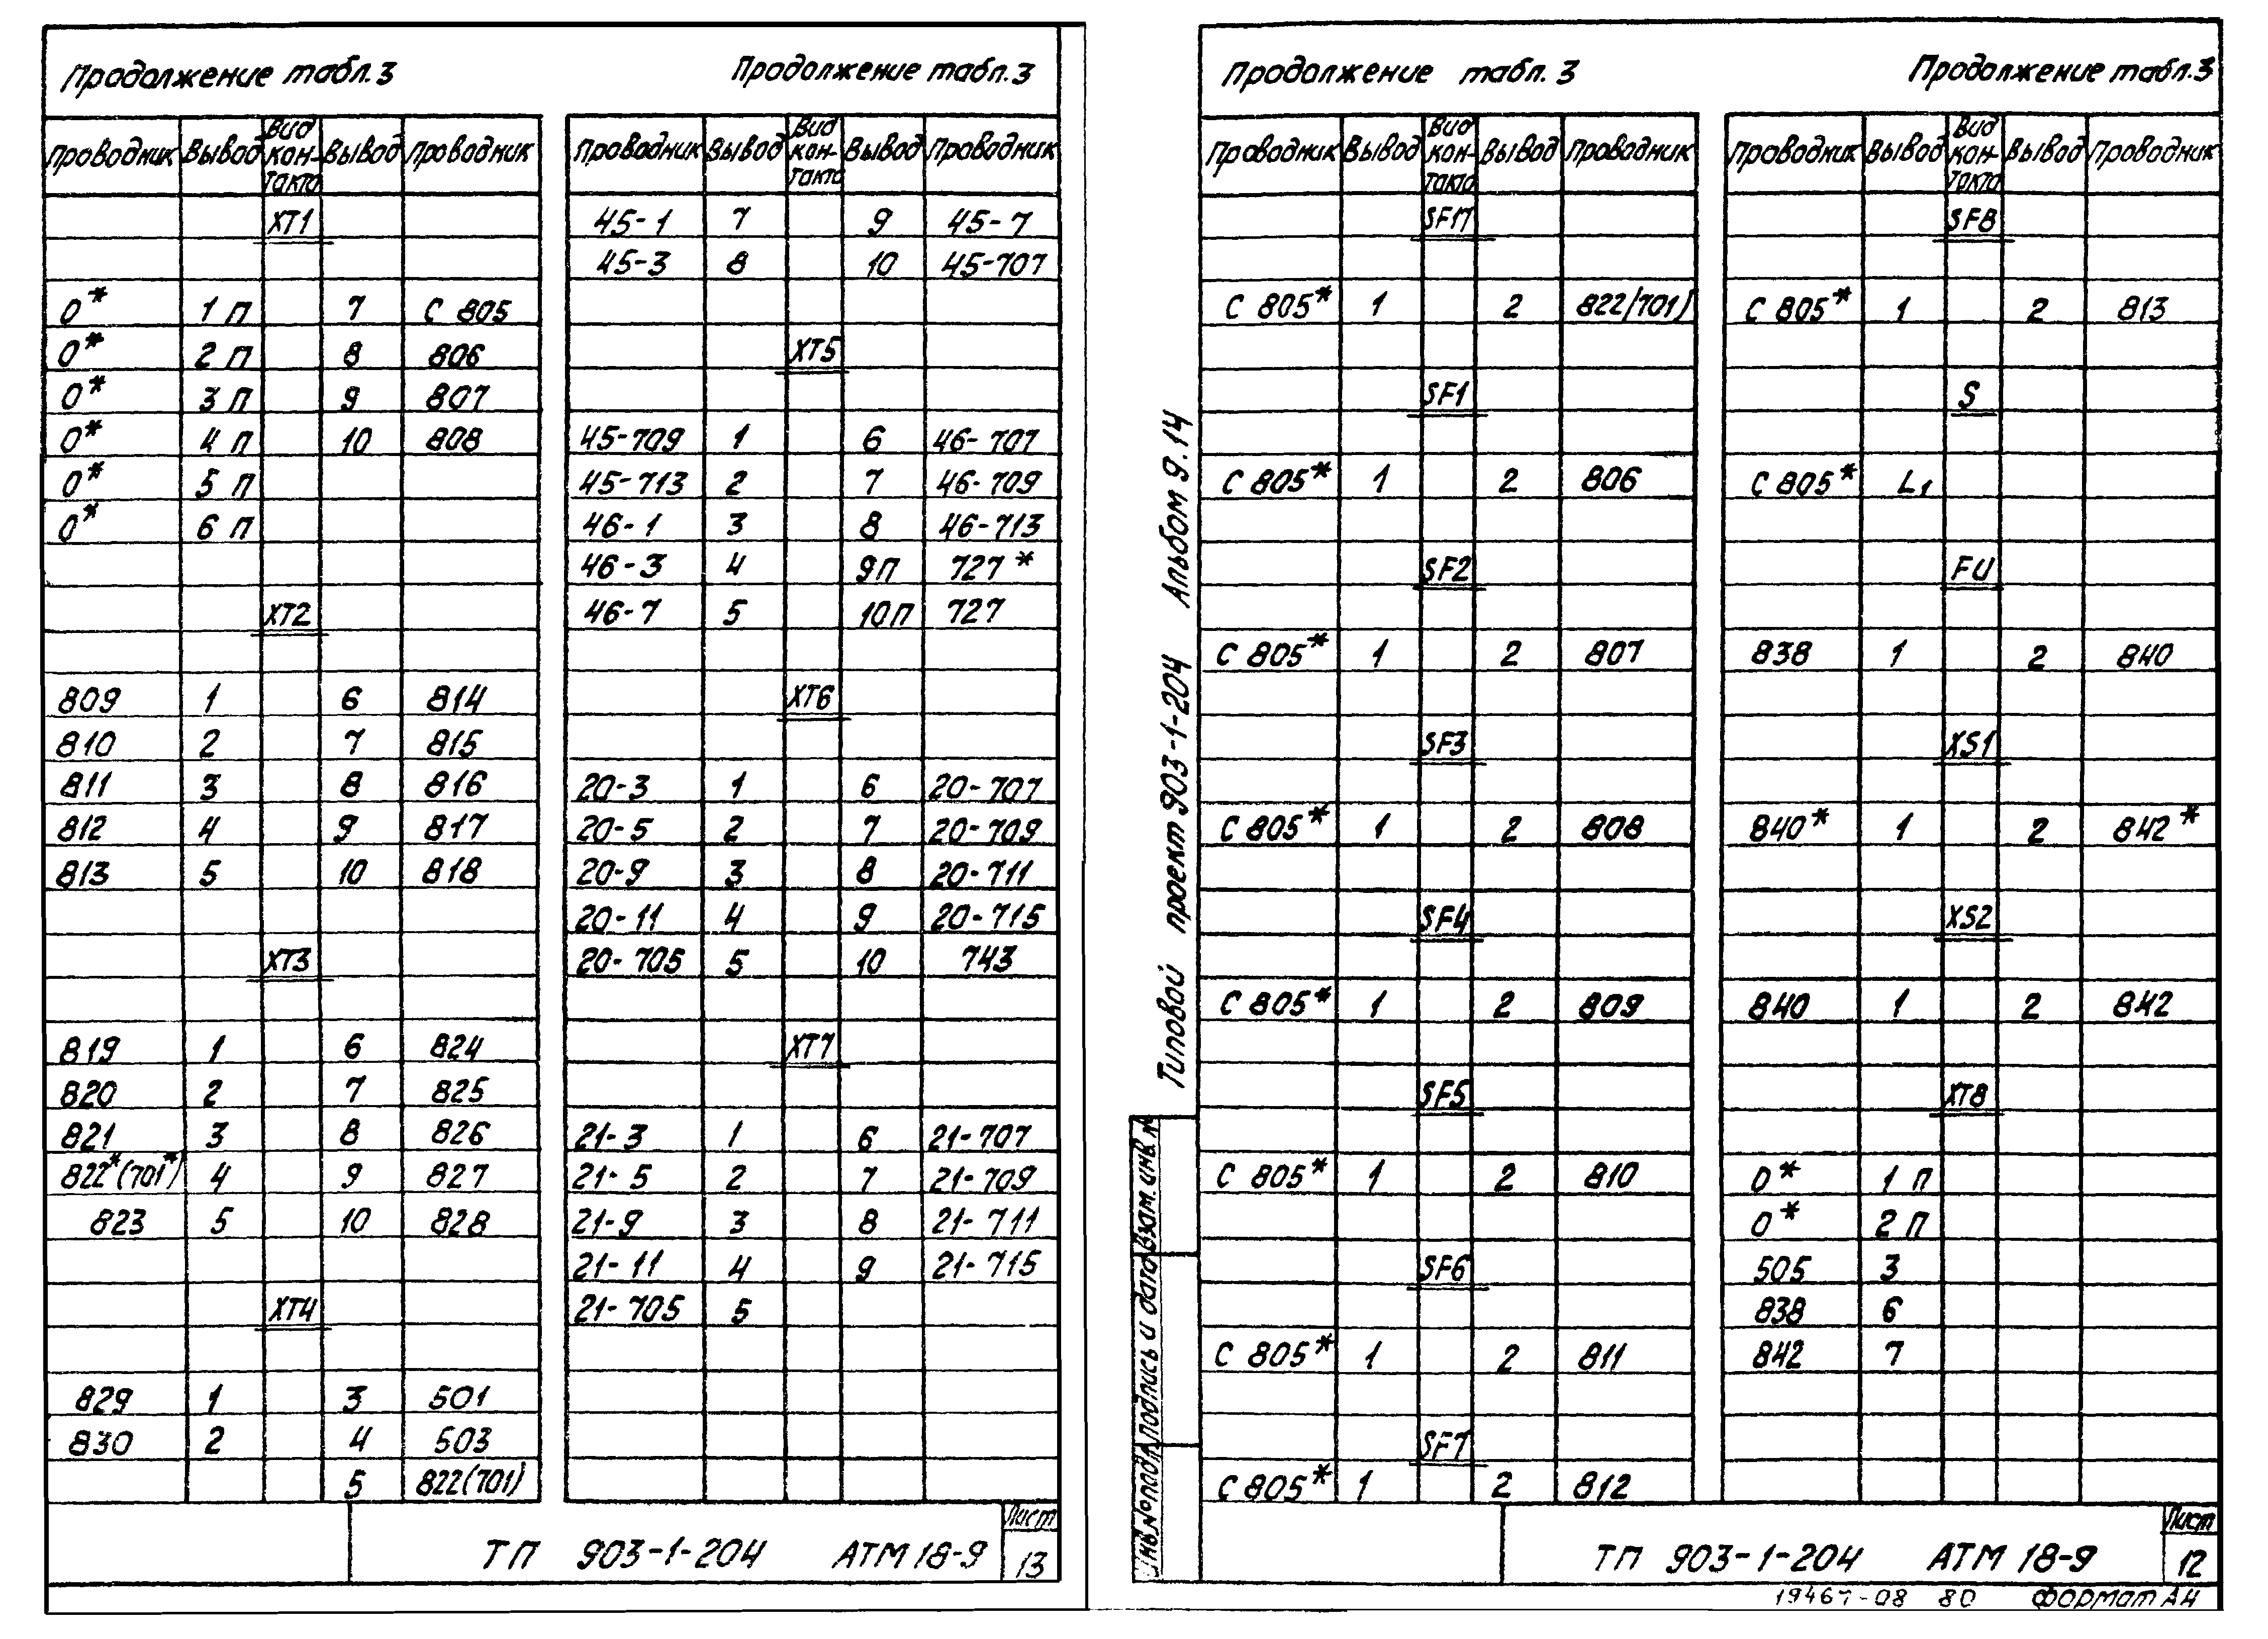 Продолжение табл.3
Проводник Вывод Вид кон-такта Вывод Проводник
XT1
0* 1 П 7 С 805
0* 2 П 8 806
0* 3 П 9 807
0* 4 П 10 808
0* 5 П
0* 6 П
XT2
809 1 6 814
810 2 7 815
811 3 8 816
812 4 9 817
813 5 10 818
XT3
819 1 6 824
820 2 7 825
821 3 8 826
822*(701*) 4 9 827
823 5 10 828
XT4
829 1 3 501
830 2 4 503
5 822(701)
Продолжение табл.3
Проводник Вывод Вид кон-такта Вывод Проводник
45-1 7 9 45-7
45-3 8 10 45-707
XT5
45-709 1 6 46-707
45-713 2 7 46-709
46-1 3 8 46-713
46-3 4 9П 727*
46-7 5 10П 727
XT6
20-3 1 6 20-707
20-5 2 7 20-709
20-9 3 8 20-711
20-11 4 9 20-715
20-705 5 10 743
XT7
21-3 1 6 21-707
21-5 2 7 21-709
21-9 3 8 21-711
21-11 4 9 21-715
21-705 5
ТП 903-1-204 АТМ 18-9
Лист
13
Типовой проект 903-1-204 Альбом 9.14
Инв.№подл. Подпись и дата Взам.инв.№
Продолжение табл.3
Проводник Вывод Вид кон-такта Вывод Проводник
SF17
С 805* 1 2 822(701)
SF1
С 805* 1 2 806
SF2
С 805* 1 2 807
SF3
С 805* 1 2 808
SF4
С 805* 1 2 809
SF5
С 805* 1 2 810
SF6
С 805* 1 2 811
SF7
С 805* 1 2 812
Продолжение табл.3
Проводник Вывод Вид кон-такта Вывод Проводник
SF8
С 805* 1 2 813
S
С 805* L1
FU
838 1 2 840
XS1
840* 1 2 842*
XS2
840 1 2 842
XT8
0* 1 П
0* 2 П
505 3
838 6
842 7
ТП 903-1-204 АТМ 18-9
Лист
12
19467-08 80 Формат А4